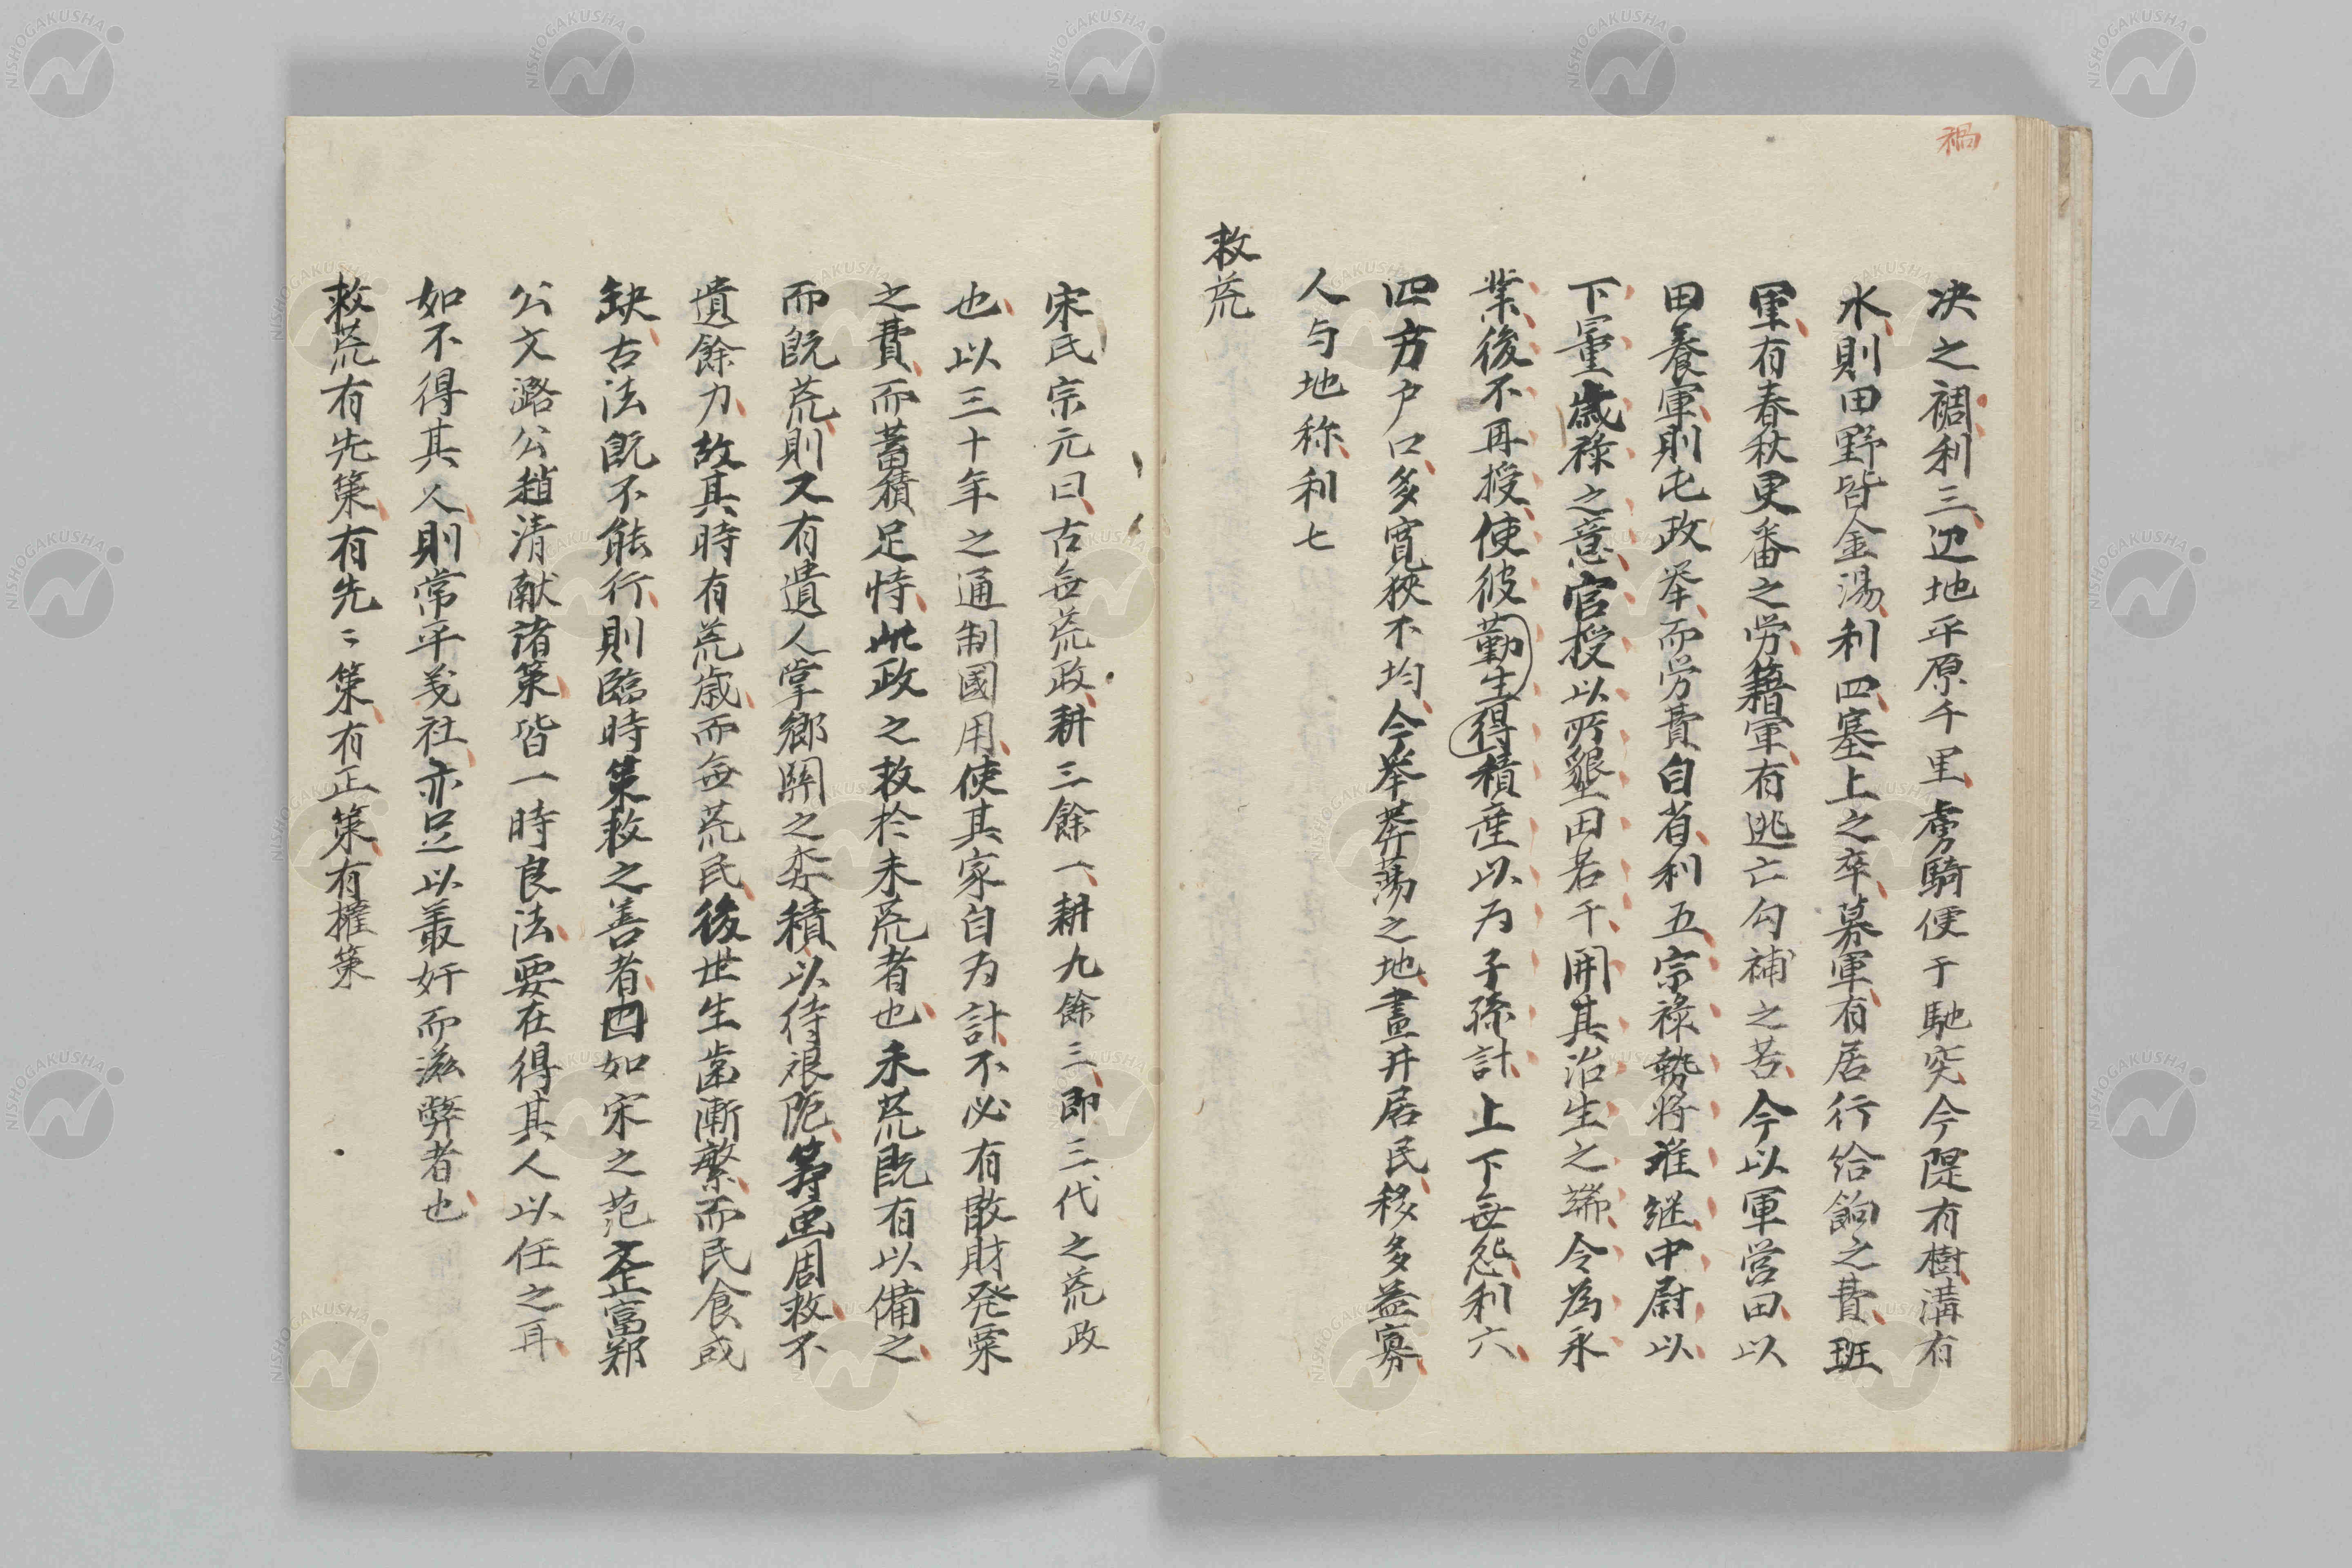 禍
决之禍利三辺地平原千里虜騎便于馳突今隄有樹溝有
水則田野皆金湯利四塞上之卒募軍有居行給餉之費班
軍有春秋更番之労籍軍有逃亡勾補之苦今以軍営田以
田養軍則屯政举而労費自省利五宗禄勢将难継中尉以
下量歳禄之意官授以所墾田若干開其治生之端令為永
業後不再授使彼勤生得積産以为子孫計上下毎怨利六
四方户口多寛狹不均今举莽蕩之地畫井居民移多益寡
人与地称利七
救荒
宋民宗元曰古毎荒政耕三餘一耕九餘三即三代之荒政
也以三十年之通制國用使其家自为計不必有散財発粟
之費而蓄積足恃此政之救於未荒者也未荒既有以備之
而既荒則又有遺人掌郷関之委積以待艱阨筹画周救不
遺餘力故其時有荒歳而毎荒民後世生歯漸繁而民食或
缺古法既不能行則臨時策救之善者因如宋之范文正富郑
公文潞公趙清献諸策皆一時良法要在得其人以任之耳
如不得其人則常平義社亦足以叢奸而滋弊者也
救荒有先策有先〻策有正策有權策
NISHOGAKUSHA